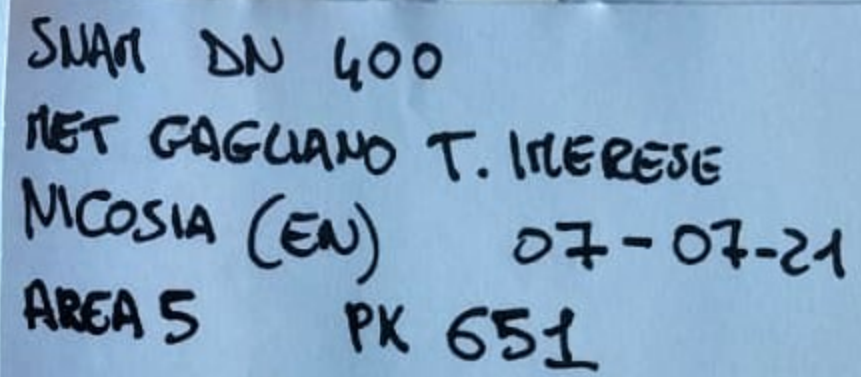 SNAM DN 400
MET GAGLIANO T. IMERESE
NICOSIA (EN) 07-07-21
AREA 5 PK 651